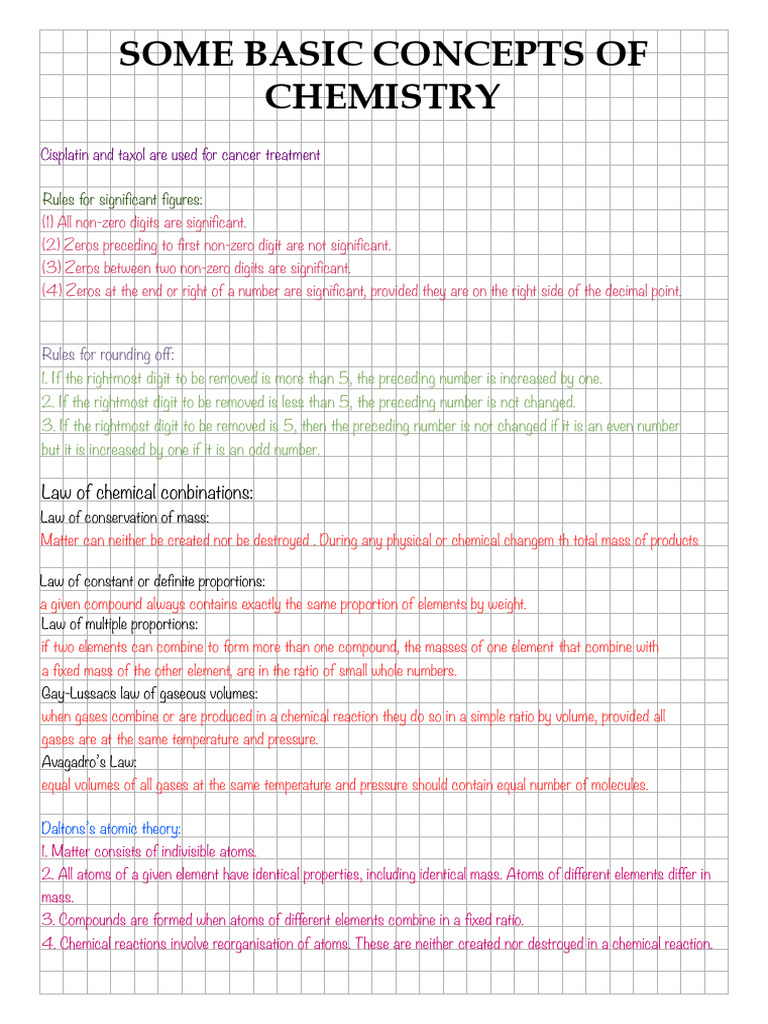 SOME BASIC CONCEPTS OF
CHEMISTRY
Cisplatin and taxol are used for cancer treatment
Rules for significant figures:
(1) All non-zero digits are significant.
(2) Zeros preceding to first non-zero digit are not significant.
(3) Zeros between two non-zero digits are significant.
(4) Zeros at the end or right of a number are significant, provided they are on the right side of the decimal point.
Rules for rounding off:
1. If the rightmost digit to be removed is more than 5, the preceding number is increased by one.
2. If the rightmost digit to be removed is less than 5, the preceding number is not changed.
3. If the rightmost digit to be removed is 5, then the preceding number is not changed if it is an even number
but it is increased by one if it is an odd number.
Law of chemical conbinations:
Law of conservation of mass:
Matter can neither be created nor be destroyed . During any physical or chemical changem th total mass of products
Law of constant or definite proportions:
a given compound always contains exactly the same proportion of elements by weight.
Law of multiple proportions:
if two elements can combine to form more than one compound, the masses of one element that combine with
a fixed mass of the other element, are in the ratio of small whole numbers.
Gay-Lussacs law of gaseous volumes:
when gases combine or are produced in a chemical reaction they do so in a simple ratio by volume, provided all
gases are at the same temperature and pressure.
Avagadro's Law:
equal volumes of all gases at the same temperature and pressure should contain equal number of molecules.
Daltons's atomic theory:
1. Matter consists of indivisible atoms.
2. All atoms of a given element have identical properties, including identical mass. Atoms of different elements differ in
mass.
3. Compounds are formed when atoms of different elements combine in a fixed ratio.
4. Chemical reactions involve reorganisation of atoms. These are neither created nor destroyed in a chemical reaction.